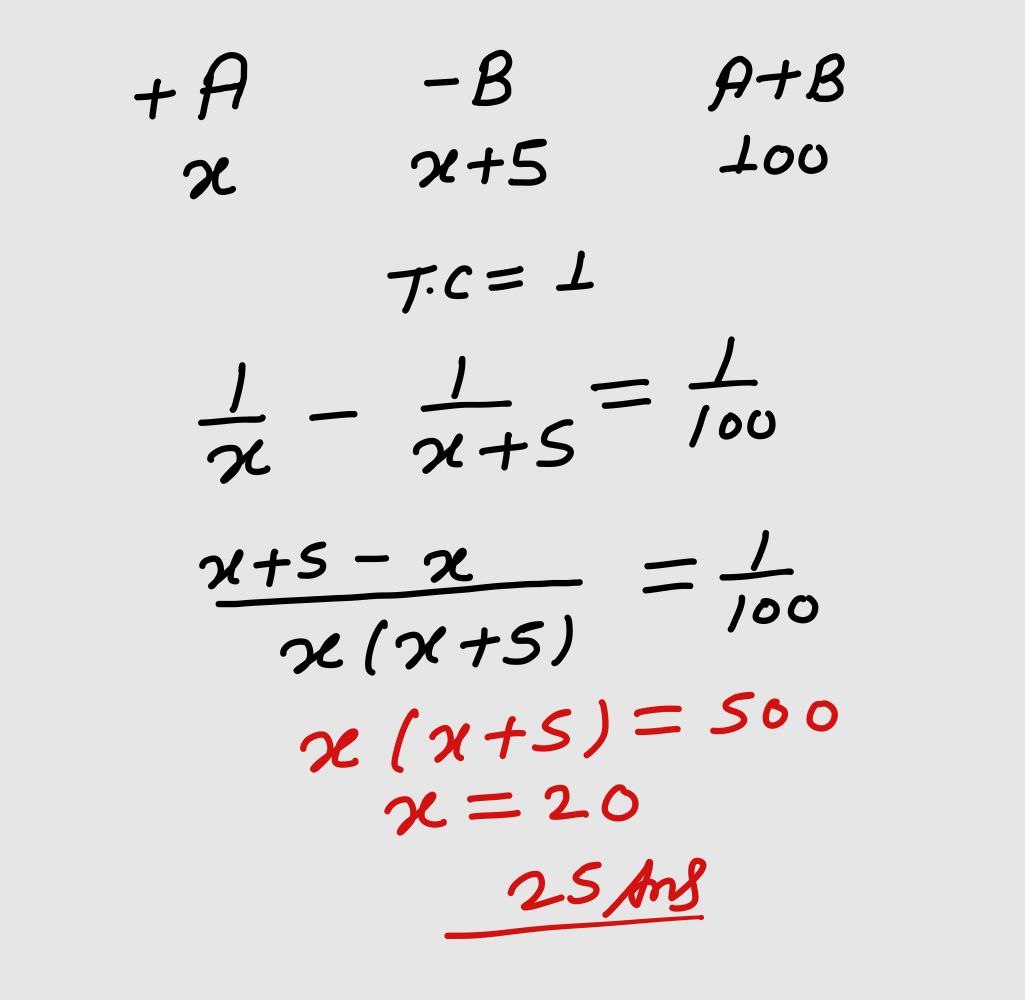 +A -B A+B
x x+5 100
T.C = 1
1/x - 1/x+5 = 1/100
x+5 - x / x(x+5) = 1/100
x(x+5) = 500
x = 20
25 Ans